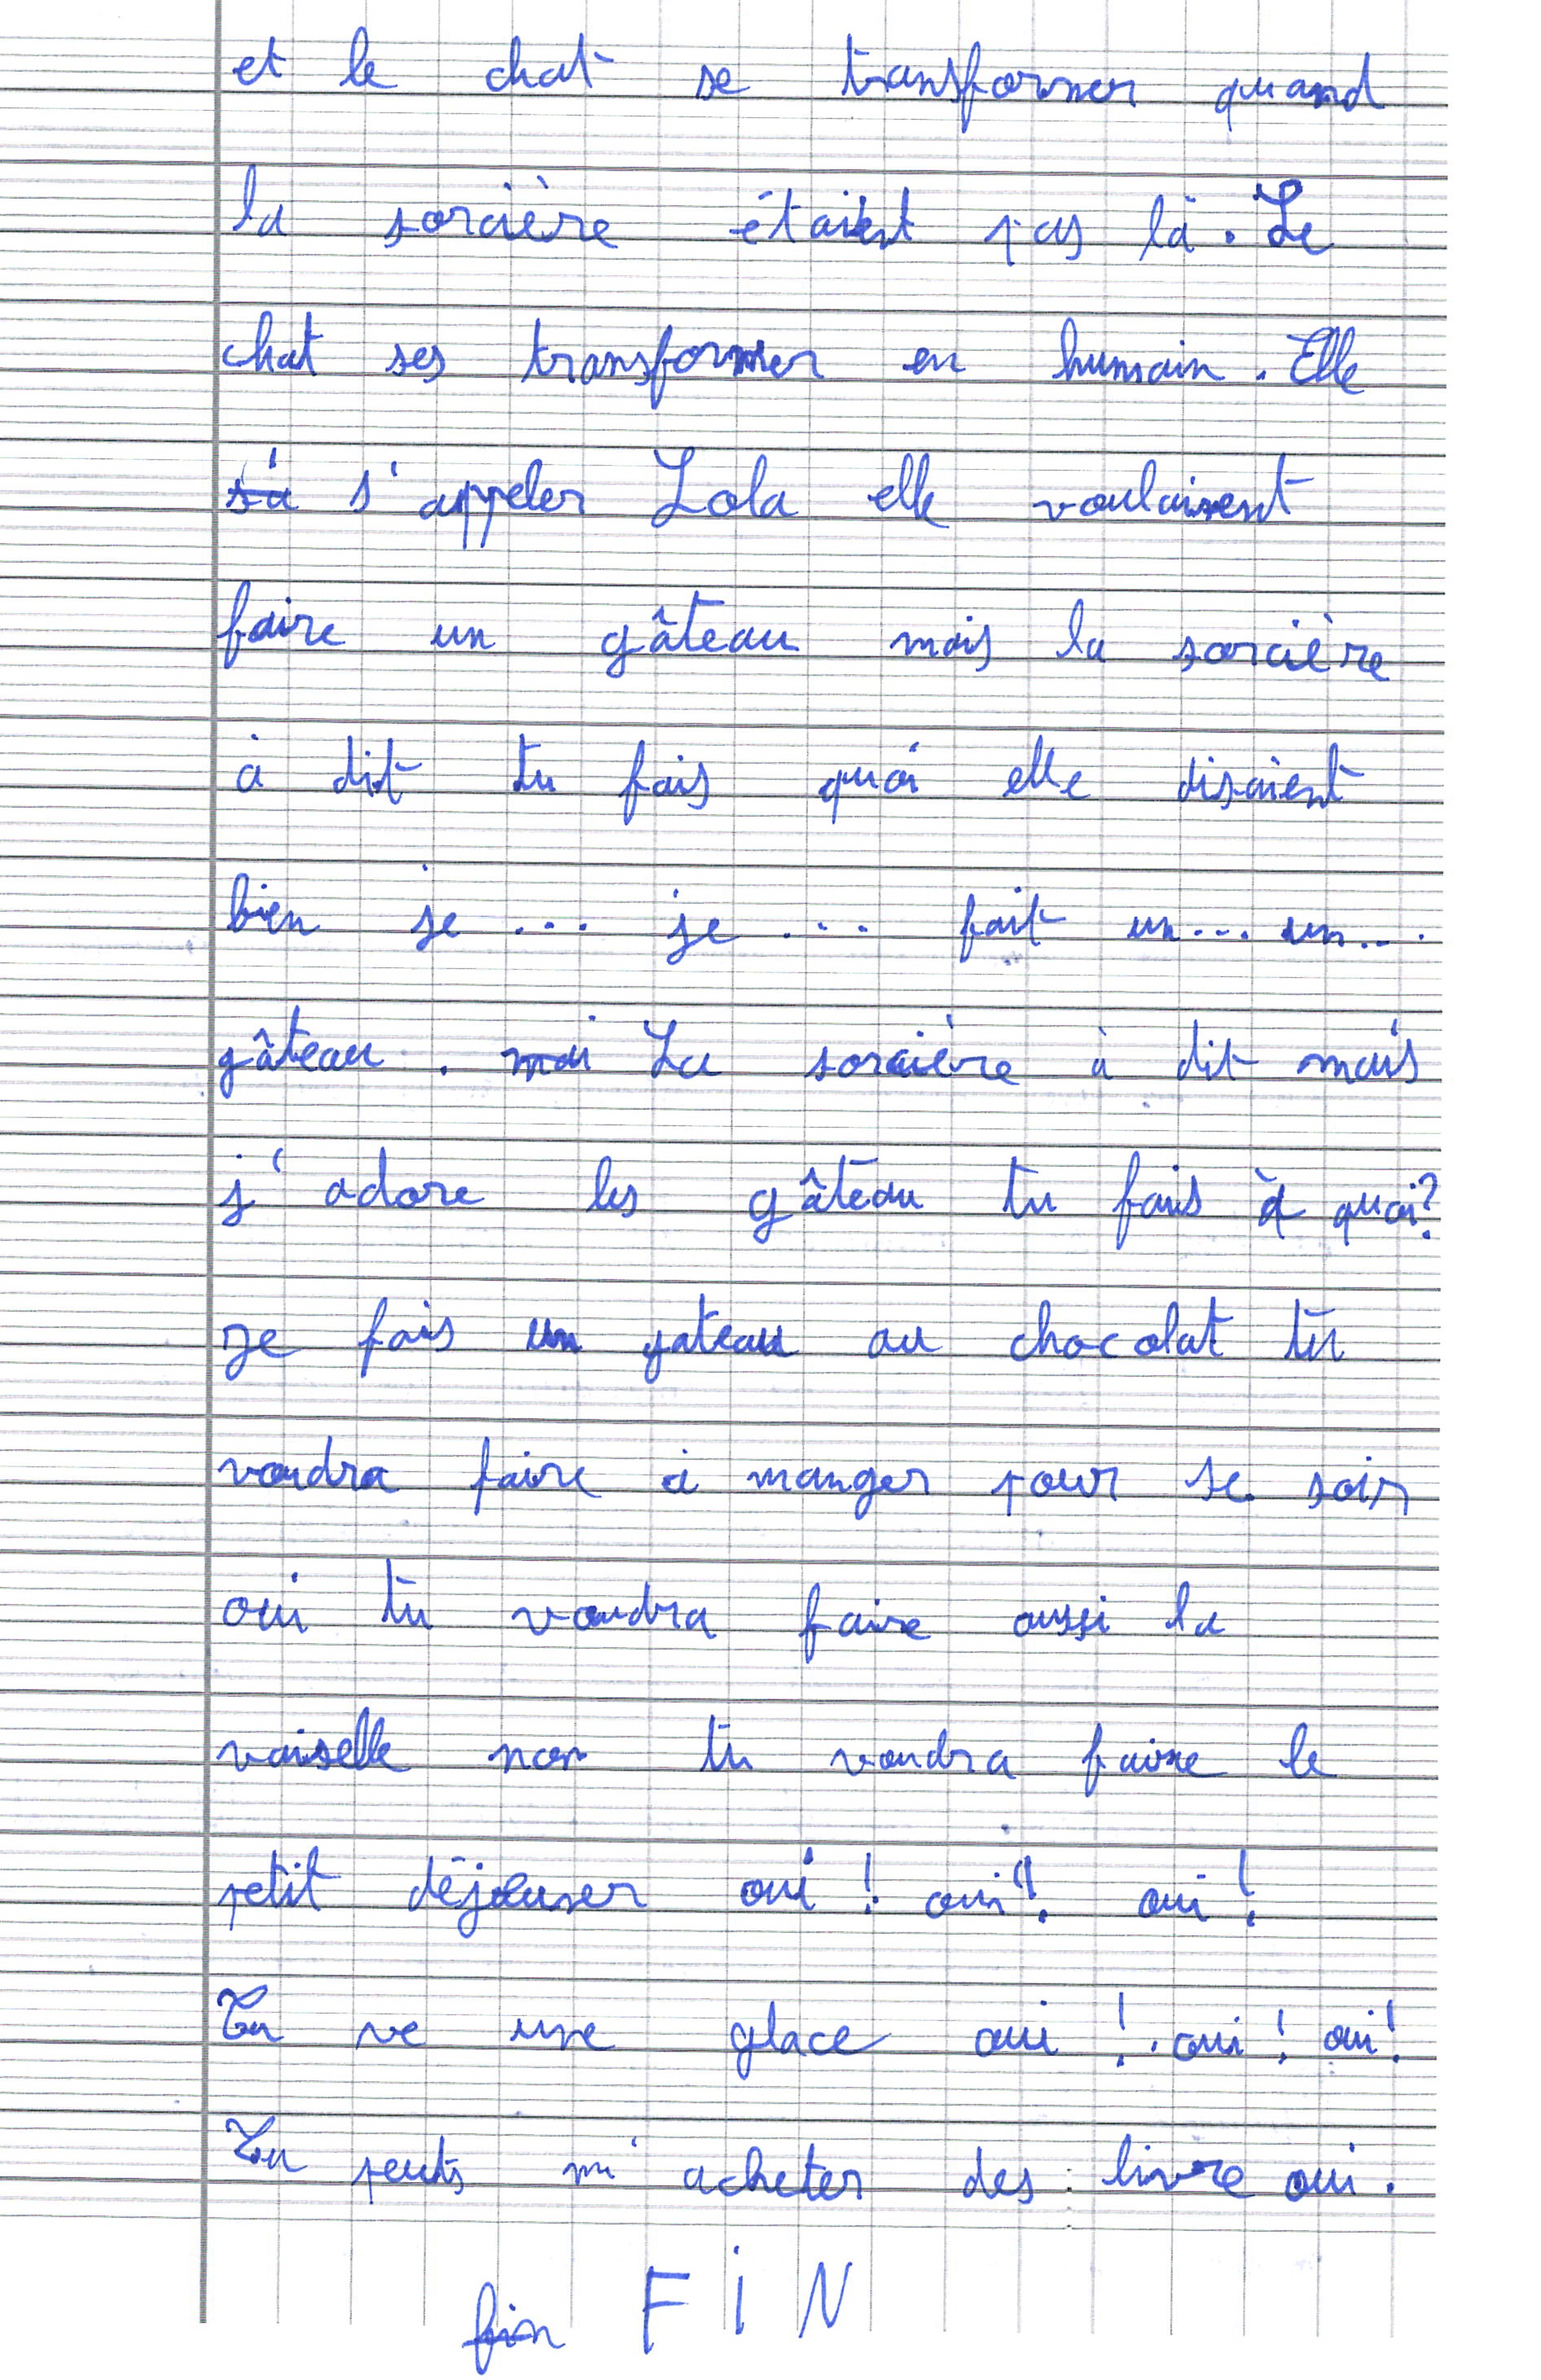 et le chat se transformer quand
la sorcière étaient pas là. Le
chat ses transformer en humain. Elle
s'a s'appeler Lola elle voulaient
faire un gâteau mais la sorcière
à dit tu fais quoi elle disaient
bien je ... je ... fait un... un...
gâteau. moi La sorcière à dit mais
j'adore les gâteau tu fais à quoi?
Je fais un gateau au chocolat tu
voudra faire à manger pour se soir
oui tu voudra faire aussi la
vaiselle non tu voudra faire le
petit déjeuner oui ! oui ! oui !
Tu ve une glace oui ! oui ! oui !
Tu peuts m'acheter des livre oui.
fin FiN